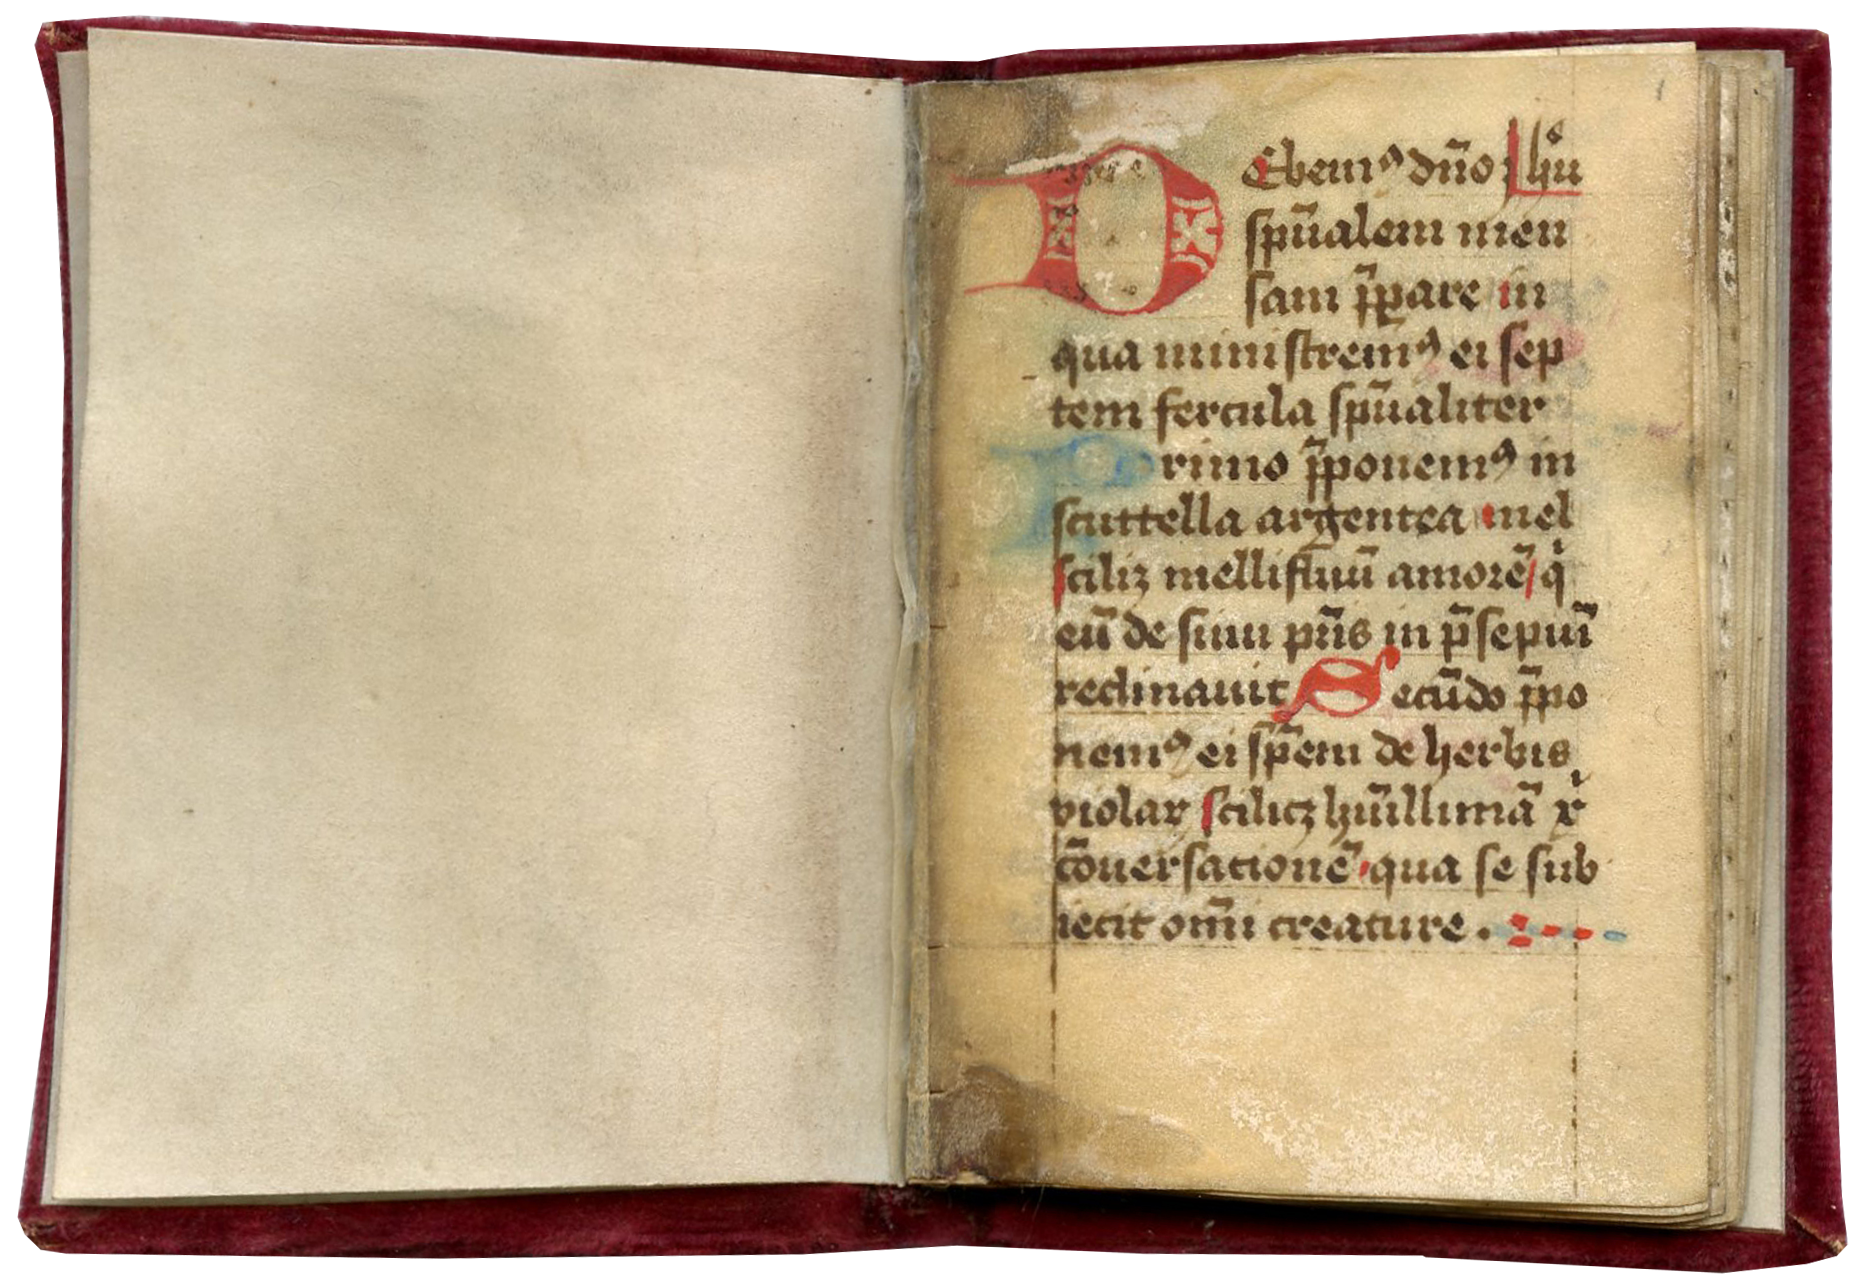 Debemꝰ dño Jhũ
spũalem men
sam p̃parare in
qua ministremꝰ ei sep
tem fercula spũaliter
Primo p̃ponemꝰ in
scuttella argentea mel
scilicꝫ mellifluũ amorẽ qͥ
eũ de sinu pr̃is in p̃sepiũ
reclinauit Secũdo p̃po
nemꝰ ei sp̃em de herbis
violarꝝ scilicꝫ hũillimã xͥ
cõuersationẽ qua se sub
iecit om̃i creature .